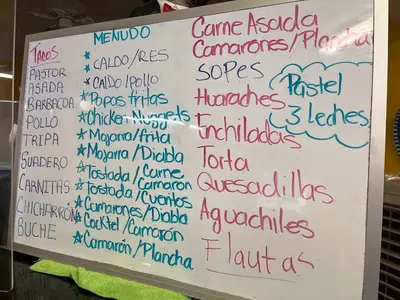 TACOS
PASTOR
ASADA
BARBACOA
POLLO
TRIPA
SUADERO
CARNITAS
CHICHARRÓN
BUCHE
MENUDO
* CALDO/RES
* CALDO/POLLO
* Papas fritas
* Chicken Nuggets
* Mojarra/frita
* Mojarra/Diabla
* Tostada/Carne
* Tostada/Camaron
* Camarones/Diabla
* Cocktel/Camarón
* Camarón/Plancha
Carne Asada
Camarones/Plancha
SOPES
Huaraches
Enchiladas
Torta
Quesadillas
Aguachiles
Flautas
Pastel
3 leches